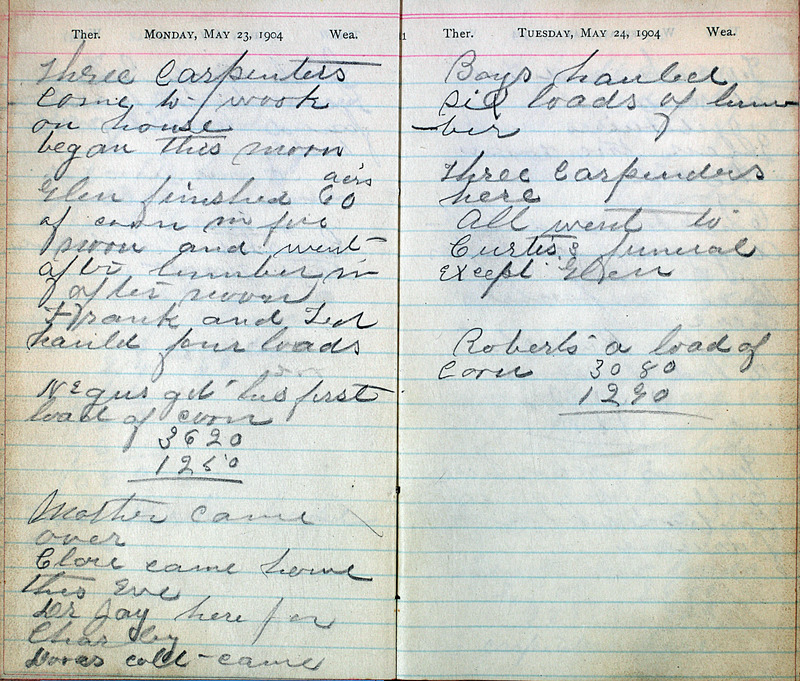 Ther. MONDAY, MAY 23, 1904 Wea.
Three Carpenters
come to work
on house
began this morn
acirs
Glen finished 60
of corn in fore
noon and went
after lumber in
after noon
Frank and Ted
hauld four loads
Negus got his first
load of corn
3620
1260
Mother came
over
Clore came home
this Eve
Dr Jay here for
Charley
Doras colt came
1
Ther. TUESDAY, MAY 24, 1904 Wea.
Boys hauled
six loads of lum
ber
Three Carpenders
here
All went to
Curtis funeral
except Glen
Roberts a load of
corn 3080
1290